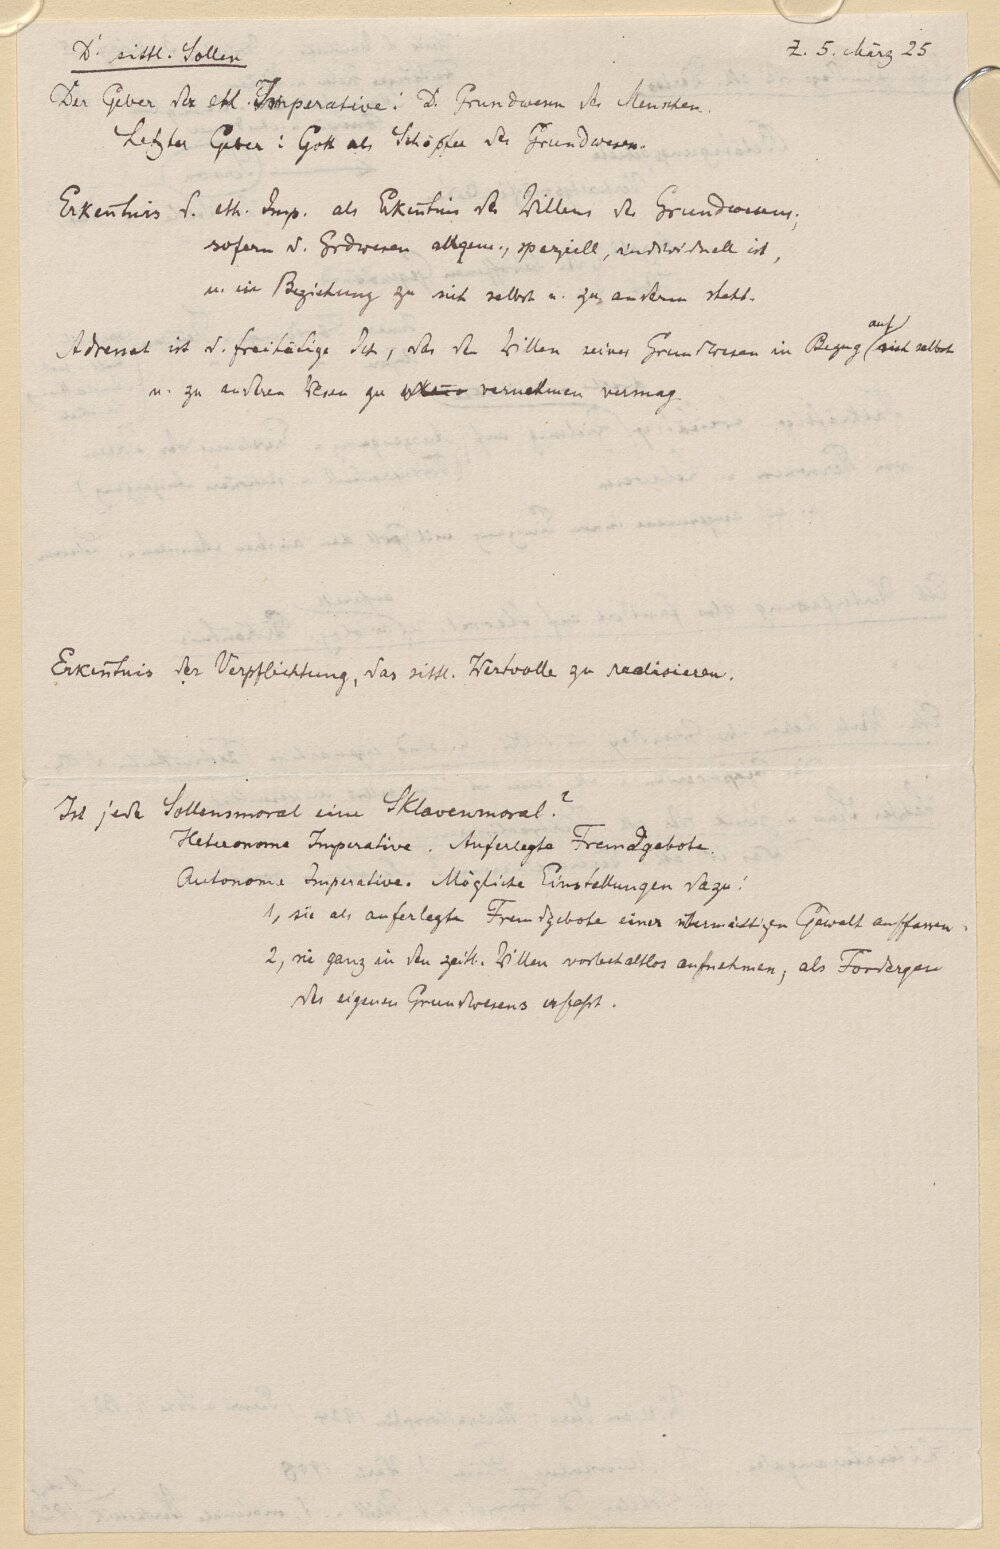 D. sittl. Sollen
Z. 5. März 25
Der Geber der eth. Imperative: D. Grundwesen des Menschen.
Letzter Geber: Gott als Schöpfer des Grundwesens.
Erkeñtnis d. eth. Imp. als Erkeñtnis des Willens des Grundwesens,
sofern d. Grdwesen allgem., speziell, individuell ist,
u. in Beziehung zu sich selbst u. zu anderen steht.
Adressat ist d. freitätige Ich, das den Willen seines Grundwesens in Bezug auf sich selbst
u. zu anderen Wesen zu vernehmen vermag.
Erkeñtnis der Verpflichtung, das sittl. Wertvolle zu realisieren.
Ist jede Sollensmoral eine Sklavenmoral?
Heteronome Imperative. Auferlegte Fremdgebote.
Autonome Imperative. Mögliche Einstellungen dazu:
1, sie als auferlegte Fremdgebote einer übermächtigen Gewalt auffassen.
2, sie ganz in den zeitl. Willen vorbehaltlos aufnehmen, als Fordergen
des eigenen Grundwesens erfaßt.